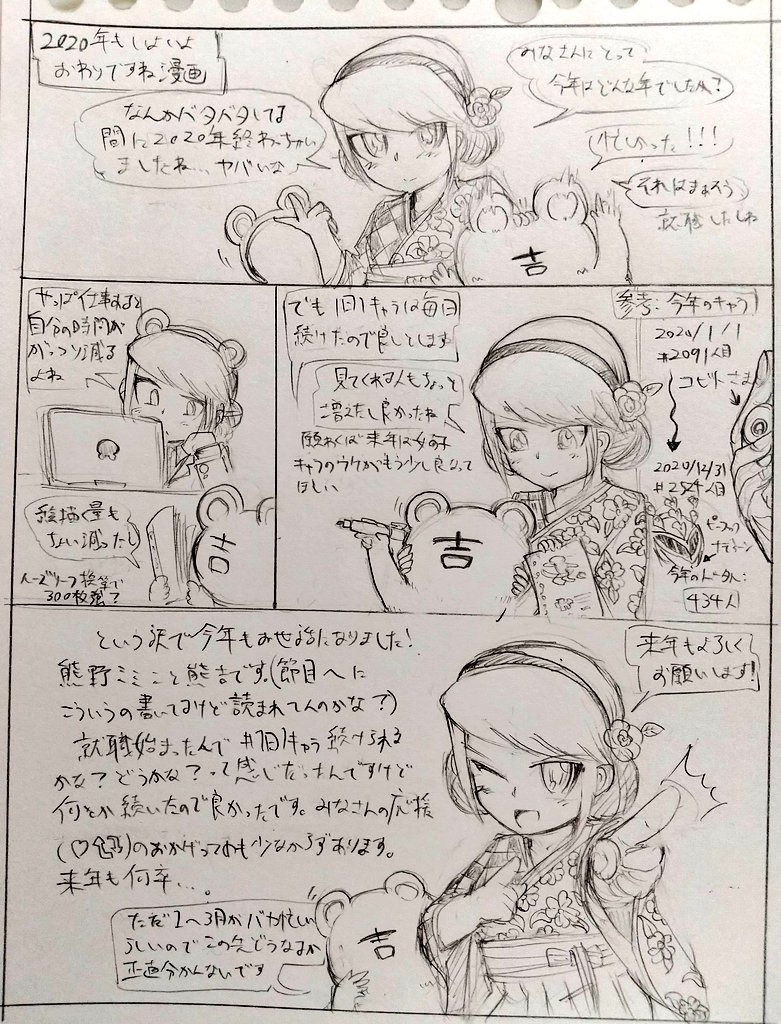 2020年もいよいよ
おわりですね漫画
みなさんにとって
今年はどんな年でしたか?
なんかバタバタしてる
間に2020年終わっちゃい
ましたね…ヤバいな
忙しかった!!!
それはまぁそう
就職したしね
やっぱ仕事すると
自分の時間が
がっつり減る
よね
絵描く量も
だいぶ減ったし
ルーズリーフ換算で
300枚弱?
でも1日1キャラは毎日
続けたので良しとします
見てくれる人もちょっと
増えたし良かったね
願わくば来年は女の子
キャラのウケがもう少し良くなって
ほしい
参考:今年のキャラ
2020/1/1
#2091人目
コビトさま
2020/12/31
#2524人目
今年のトータル:
434人
という訳で今年もお世話になりました!
熊野ミミこと熊吉です。(節目へに
こういうの書いてるけど読まれてんのかな?)
就職始まったんで#1日1キャラ続けられる
かな?どうかな?って感じだったんですけど
何とか続いたので良かったです。みなさんの応援
(♡)のおかげっても少なからずあります。
来年も何卒…。
来年もよろしく
お願いします!
ただ1〜3月がバカ忙しい
らしいのでこの先どうなるか
正直分かんないです
吉
吉
吉
吉